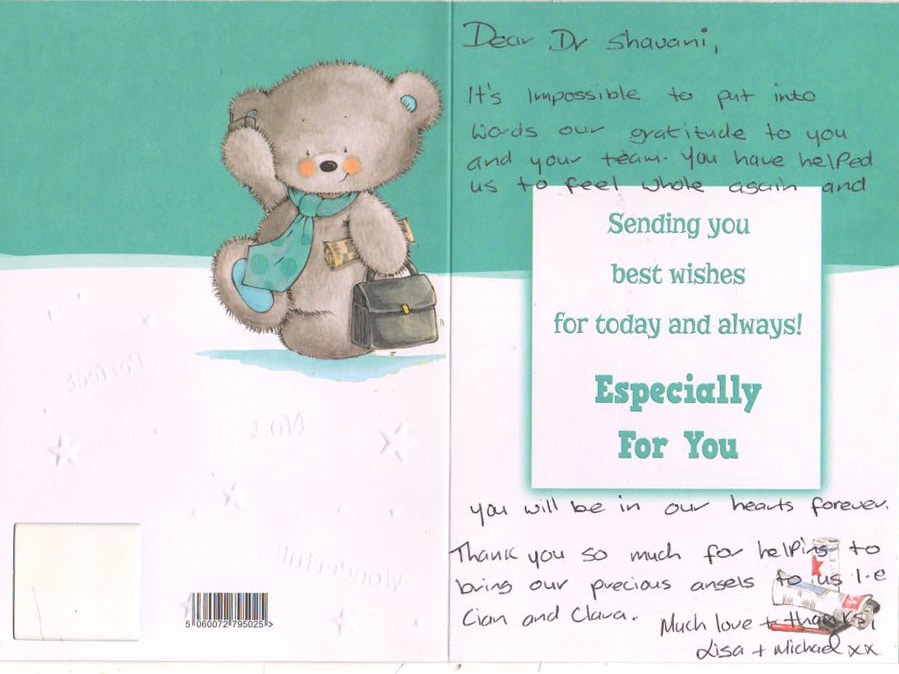 Dear Dr Shavani,
It's Impossible to put into
words our gratitude to you
and your team. You have helped
us to feel whole again and
Sending you
best wishes
for today and always!
Especially
For You
you will be in our hearts forever.
Thank you so much for helping to
bring our precious angels to us I.e
Cian and Clara.
Much love + thanks,
Lisa + Michael xx
Perfect
No.1
Wonderful!
5 060072 795025 >